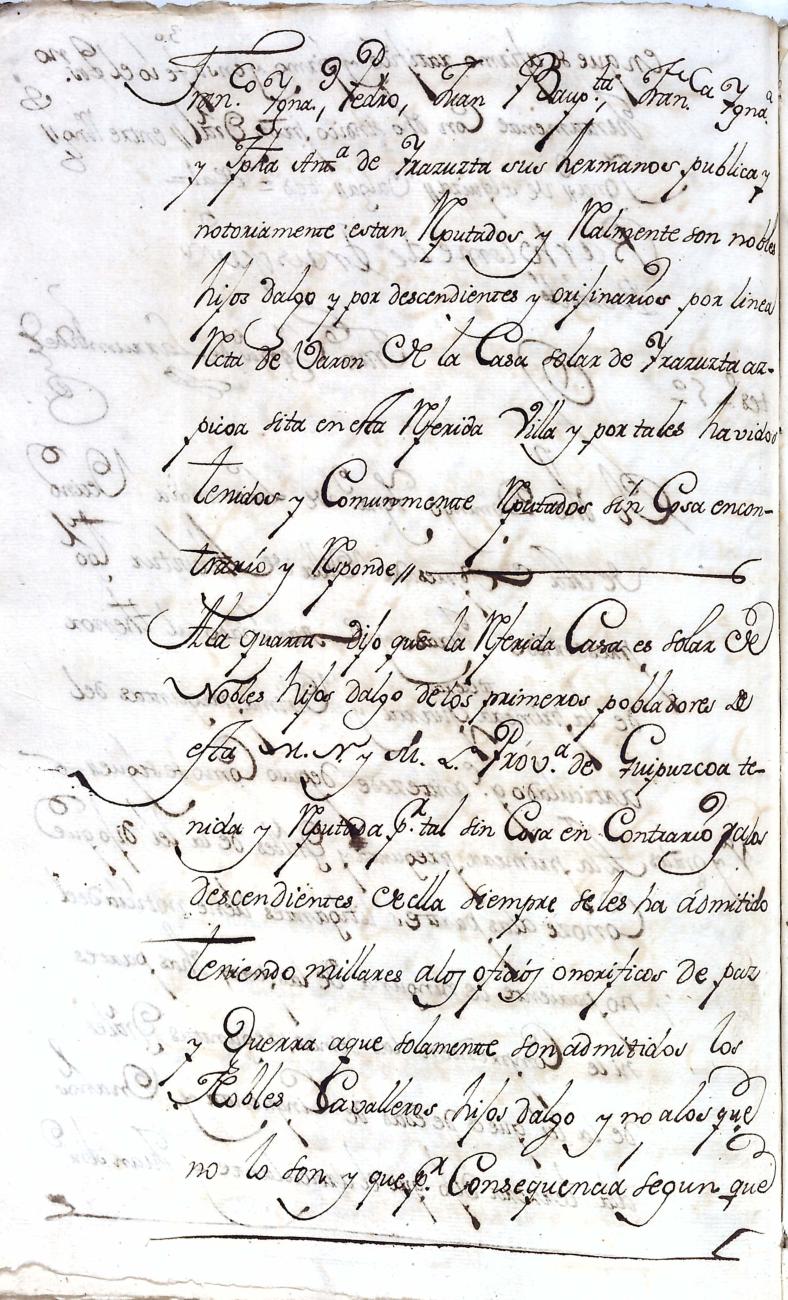 Fran.co Ygna.o, Pedro, Juan Baup.ta, Fran.ca Ygna.a
y Jpha Ant.a de Yrazuzta sus hermanos publica y
notoriamente estan Rputados y Ralmente son nobles
hijos dalgo y por descendientes y orijinarios por linea
Rcta de Varon de la Casa solar de Yrazuzta az-
picoa sita en esta Rferida Villa y por tales havidos
tenidos y Comunmente Rputados sin Cosa encon-
trario y Rsponde //
Ala quarta dijo que la Rferida Casa es solar de
Nobles hijos dalgo delos primeros pobladores de
esta M. N. y M. L. Prov.a de Guipuzcoa te-
nida y Rputada p.r tal sin Cosa en Contrario y alos
descendientes de ella siempre seles ha admitido
teniendo millares alos oficios onorificos de paz
y Guerra aque solamente son admitidos los
Nobles Cavalleros hijos dalgo y no alos que
no lo son y que p.r Consequencia segun que